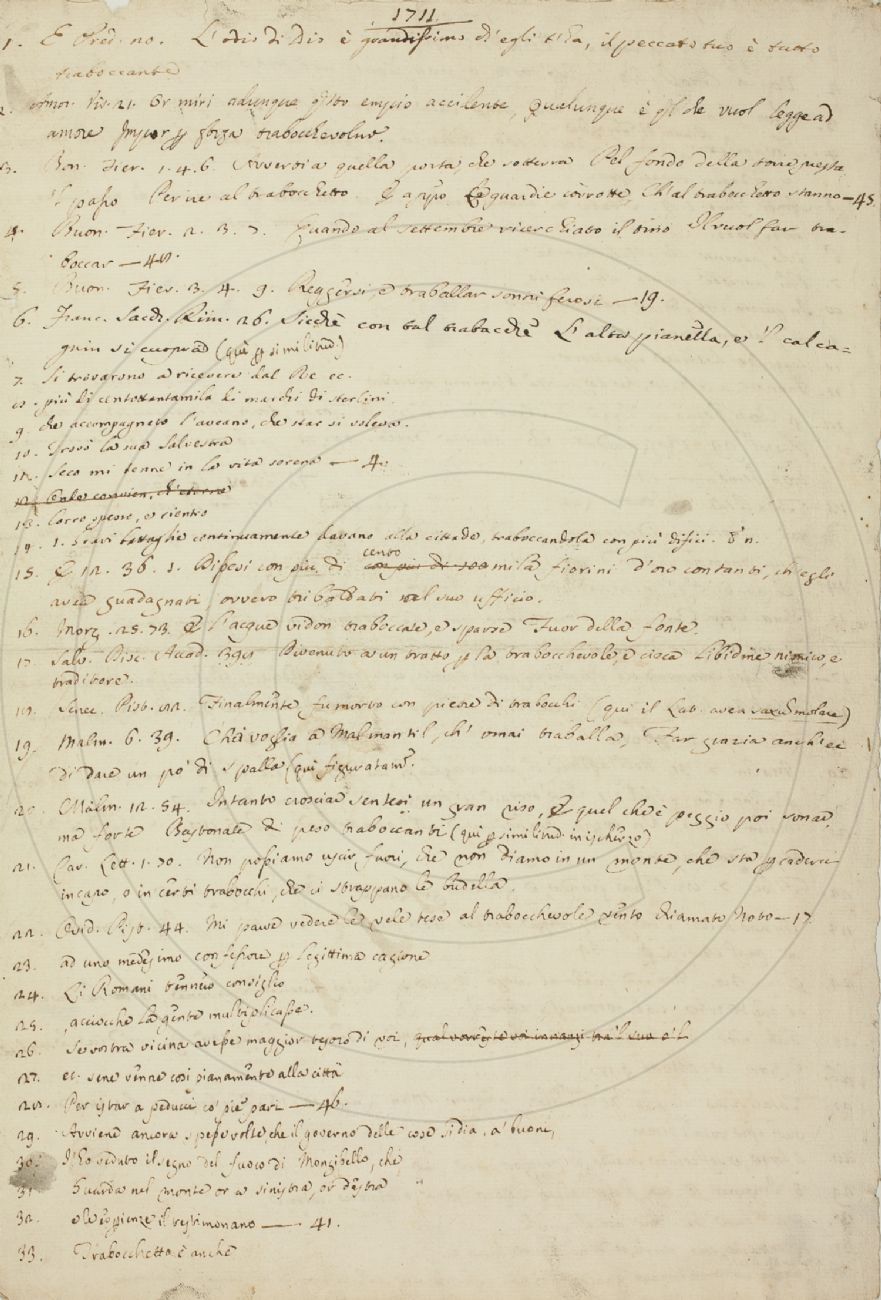 1711.
1. E Pred. no. L'odio di Dio è grandissimo ch'egli ti dà, il peccato tuo è tutto
traboccante
2. Amor. Vis. 21. Or miri adunque questo empio accidente, Qualunque è quel che vuol leggead
amore Impor p forza trabocchevolm.
3. Bon. Fier. 1. 4. 6. Avverti a quella porta, che sotterra Nel fondo della torre presta
'l passo Per ire al trabocchetto. E appo Le guardie corrotte, Ch'al trabocchetto stanno — 45.
4. Buon. Fier. 2. 3. 7. Quando al settembre ricerchiato il tino Il vuol far tra-
boccar — 48.
5. Buon. Fier. 3. 4. 9. Reggersi, e traballar sonniferosi — 19.
6. Franc. Sacch. Rim. 26. Sicchè con tal trabacchè L'alta pianella, e 'l calca=
gnin si cuoprad (qui p similitud.)
7. Si trovarono a ricevere dal Re ec.
8. più di centottantamila di marchi di sterlini
9. che accompagnato l'aveano, che star si voleva.
10. Trovò la sua Salvestra
11. Seco mi tenne in la vita serena — 4.
13. Corro, e sientro
14. 1. Gravi battaglie continuamente davano alla cittade, traboccandola con più difici. 8 n.
15. E 12. 36. 1. Dipesi con più di cento mila fiorini d'oro contanti, ch'egli
avea guadagnati, ovvero tribaldati nel suo ufficio.
16. Morg. 25. 73. E l'acque vidon traboccare, e sparse Fuor della fonte.
17. Salv. Disc. Accad. Divenuto a un tratto p la trabocchevole, e cieca libidine nimico, e
traditore.
18. Senec. Pist. 82. Finalmente fu morto con pietre di trabocchi (qui il Lat. avea saxum molare)
19. Malm. 6. 39. Chi voglia a Malmantil, ch'omai traballa, Far grazia anch'ei
Di dare un po' di spalla (qui figuratam.
20. Malm. 12. 54. Intanto crosciar sentesi un gran riso, E quel che è peggio poi sonar
ma forte Bastonate di peso traboccanti (qui p similitud. in ischerzo)
21. Car. Lett. 1. 30. Non possiamo uscir fuori, che non diamo in un monte, che sta p caderci
in capo, o in certi trabocchi, che ci strappano le budella.
22. Ovid. Pist. 44. Mi parve vedere le vele tese al trabocchevole vento chiamato Noto — 17
23. ad uno medesimo confessore p legittima cagione
24. Li Romani tennero consiglio
25. acciocchè la gente multiplicasse.
26. Se vostra vicina avesse maggior tesoro di voi, qual vorreste voi innanzi tra 'l suo e 'l
27. et sene venne così pianamente alla città
28. Per istar a peducci co' piè pari — 46.
29. Avviene ancora spesse volte, che il governo delle cose si dia, a' buoni,
30. I' ho veduto il segno del fuoco di Mongibello, che
31. Guarda nel monte or a sinistra, or destra
32. il testimoniano — 41.
33. Trabocchetto è anche